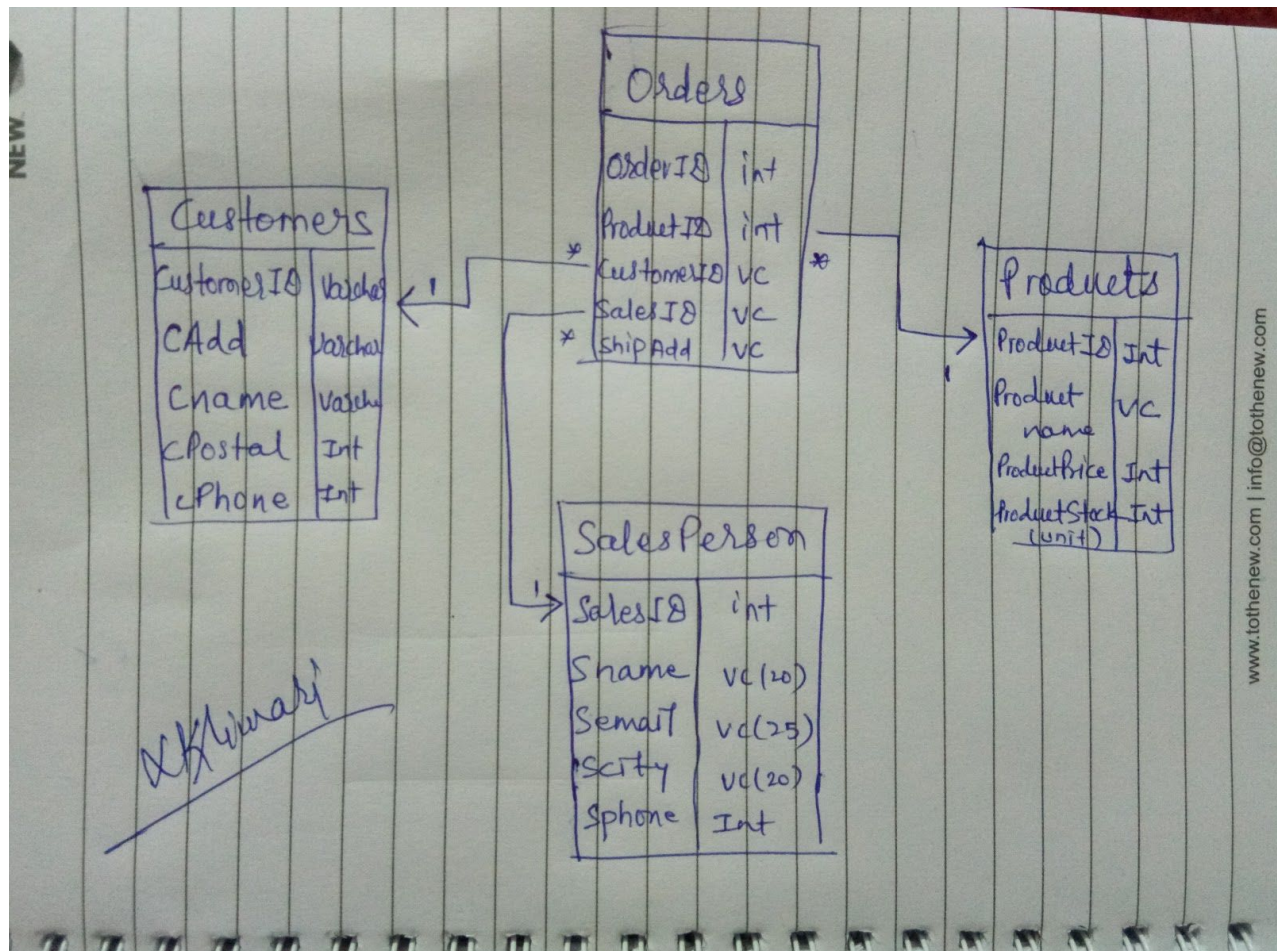 NEW
Orders
OrderID int
ProductID int
CustomerID VC
SalesID VC
ShipAdd VC
* 1
*
*
1
1
Customers
CustomerID Varchar
CAdd Varchar
Cname Varcha
cPostal Int
cPhone Int
Products
ProductID Int
Product name VC
ProductPrice Int
ProductStock Int
(unit)
SalesPerson
SalesID int
Sname VC(20)
Semail VC(25)
Scity VC(20)
Sphone Int
www.tothenew.com | info@tothenew.com